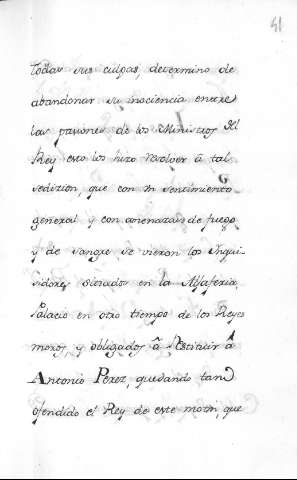 41
todas sus culpas, determino de
abandonar su inociencia entre
las pasiones de los Ministros del
Rey esto los hizo resolver â tal
sedizion, que con un sentimiento
general y con amenazas de fuego
y de sangre se vieron los Inqui-
sidores sitiados en la Aljaferia,
Palacio en otro tiempo de los Reyes
moros, y obligados â restituir Â
Antonio Perez, quedando tan
ofendido el Rey de este motin, que